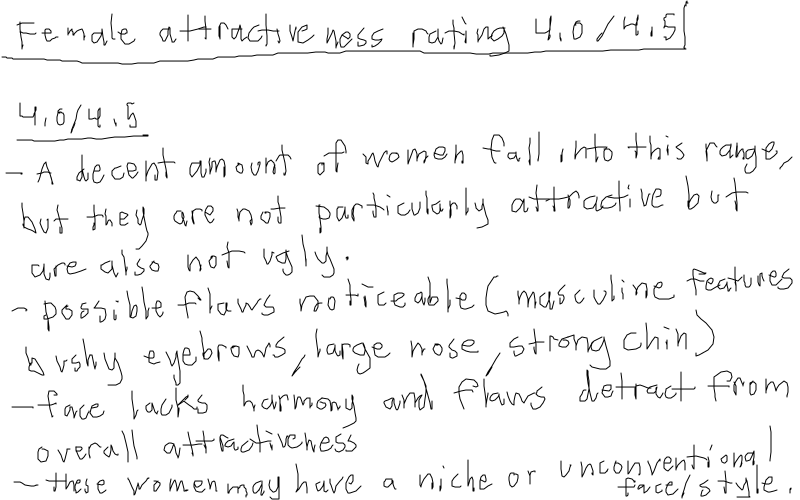 Female attractiveness rating 4.0/4.5
4.0/4.5
- A decent amount of women fall into this range,
but they are not particularly attractive but
are also not ugly.
- possible flaws noticeable (masculine features
bushy eyebrows, large nose, strong chin)
- face lacks harmony and flaws detract from
overall attractiveness
- these women may have a niche or unconventional
face/style.